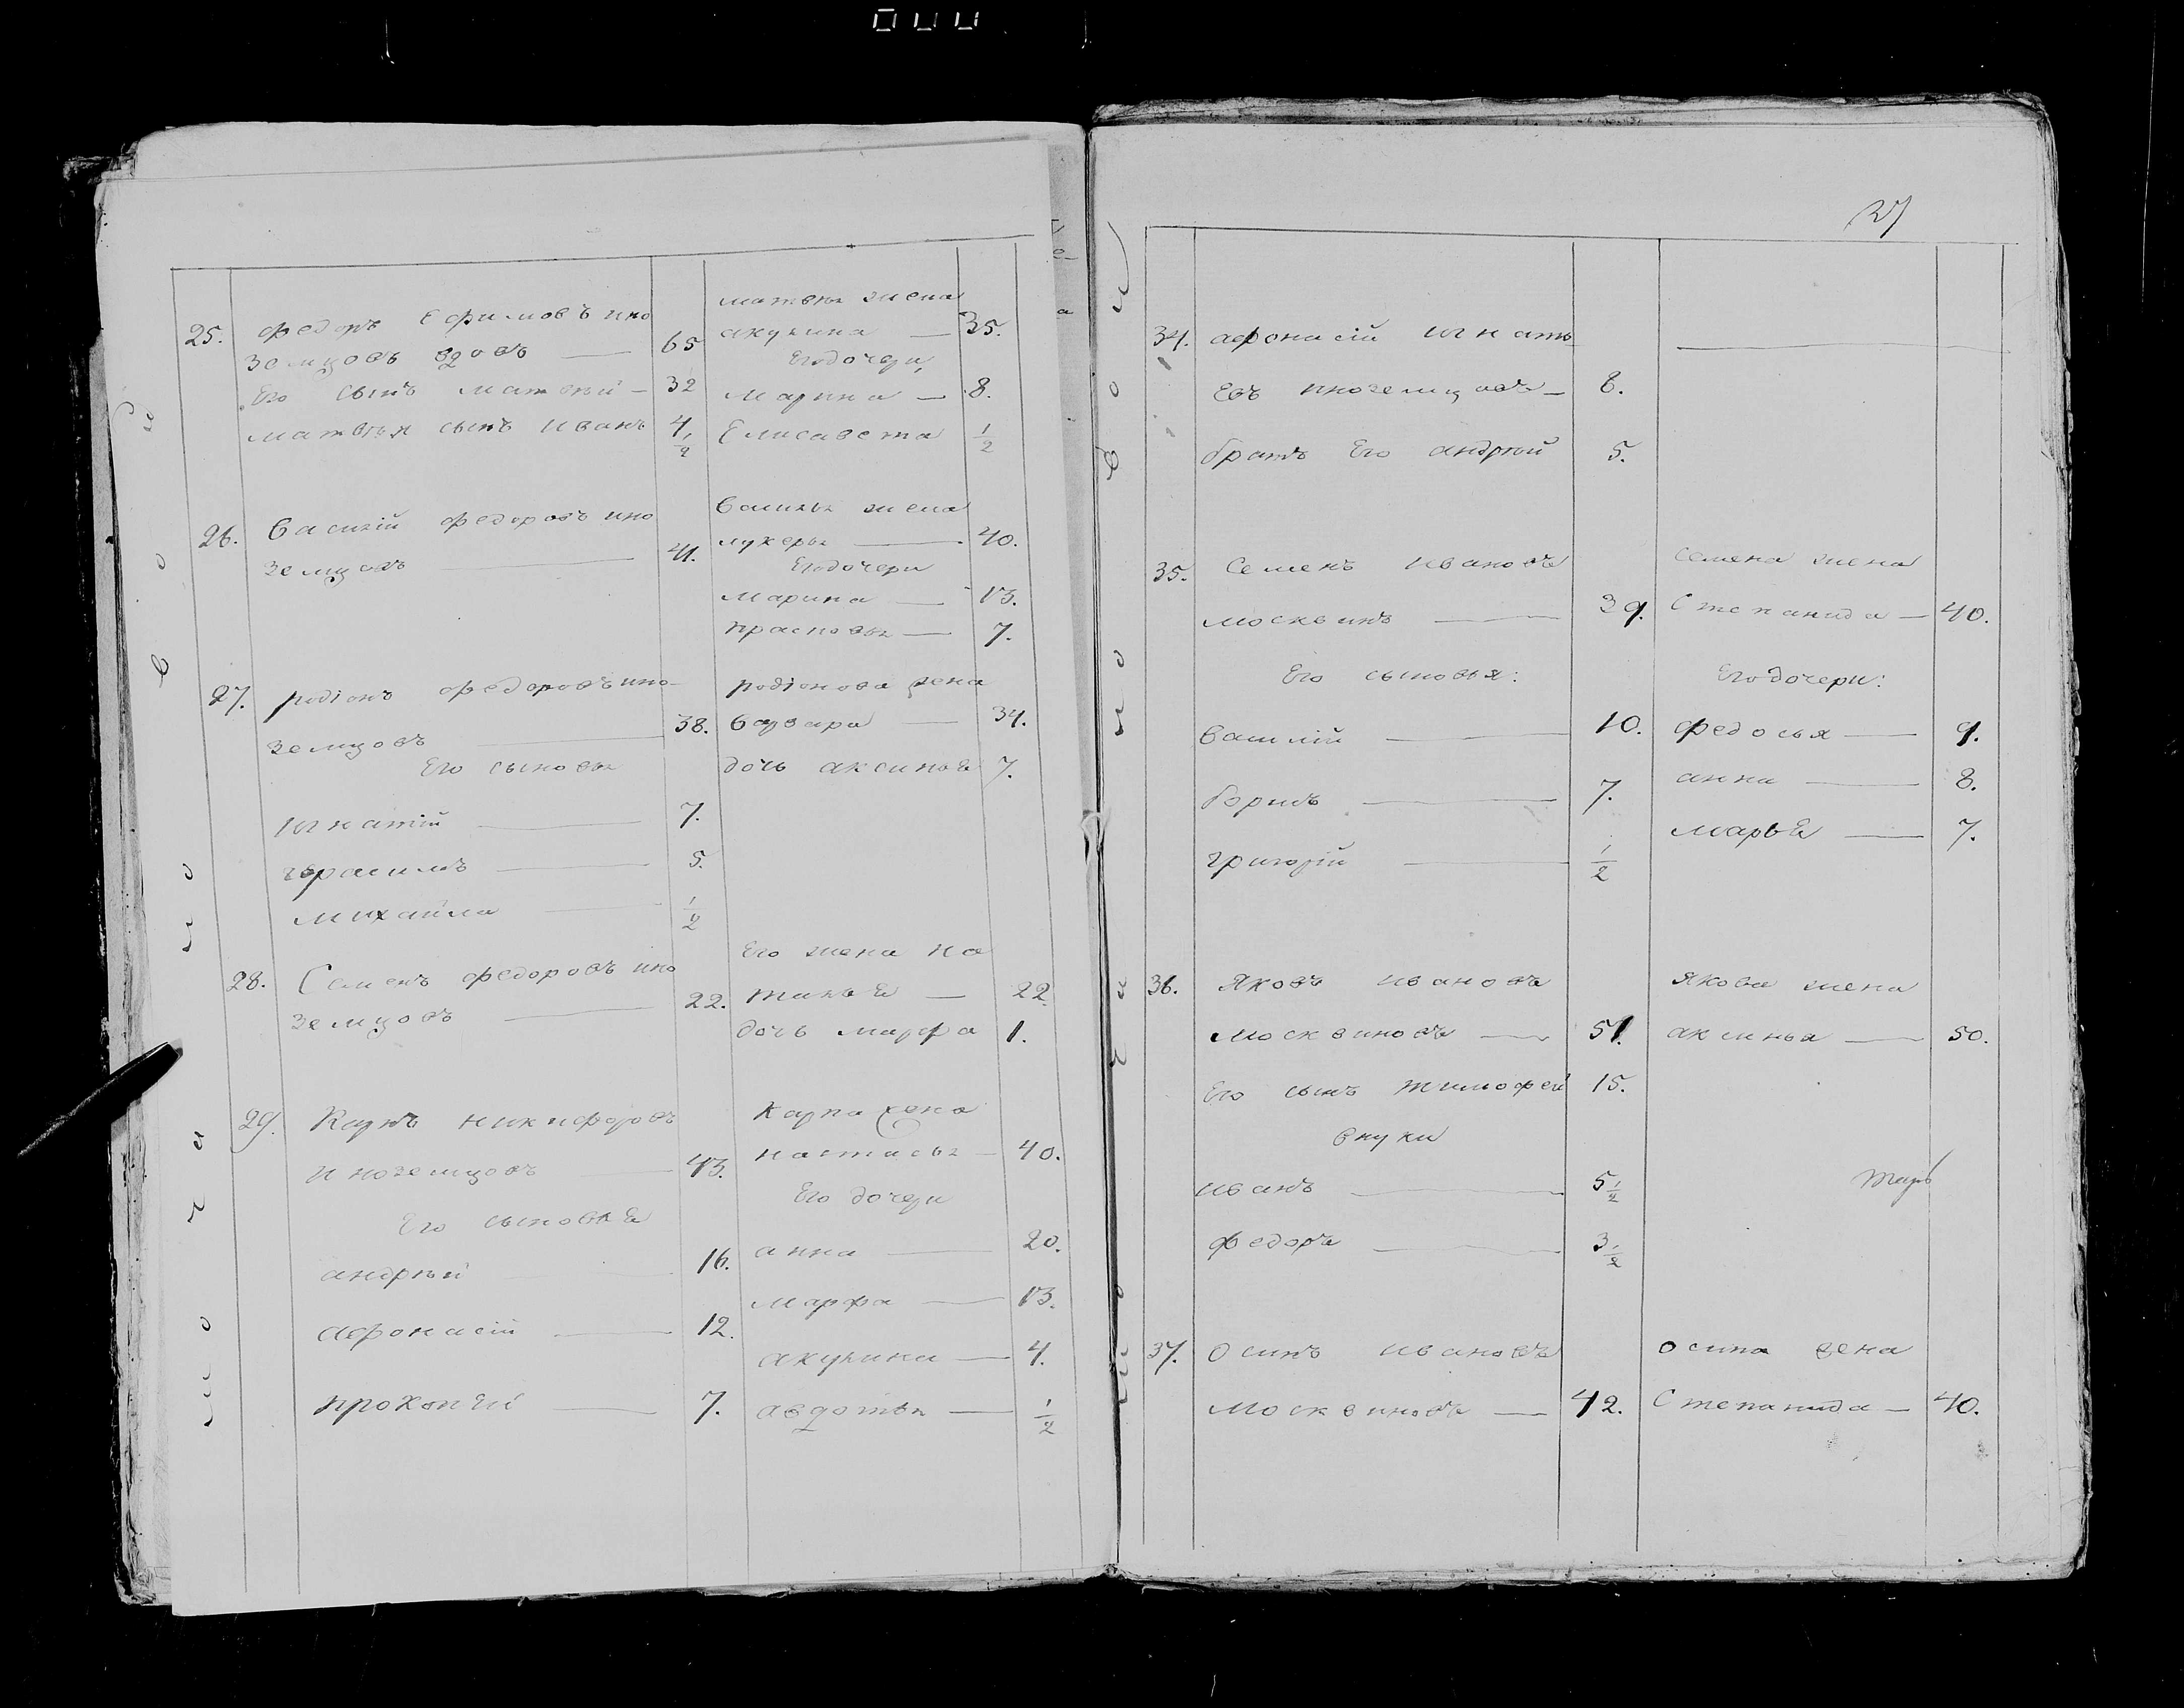 25. федоръ Ефимовъ ино
земцовъ вдовъ — 65
Его сынъ матвѣй — 32
матвѣя сынъ иванъ 4 1/2
матвѣя жена
акулина — 35.
Его дочери,
марина — 8.
Елисавета 1/2
26. василій федоровъ ино
земцовъ — 41.
василья жена
лукерья — 40.
Его дочери
марина — 13.
прасковья — 7.
27. родіонъ федоровъ ино-
земцовъ — 38.
Его сыновья
игнатій — 7.
герасимъ — 5.
михайла — 1/2
родіонова жена
варвара — 34.
дочь аксинья 7.
28. Семенъ федоровъ ино
земцовъ — 22.
Его жена на
талья — 22.
дочь марфа 1.
29. Карпъ никифоровъ
иноземцовъ — 43.
Его сыновья
андрѣй — 16.
афонасій — 12.
прокопей — 7.
Карпа жена
настасья — 40.
Его дочери
анна — 20.
марфа — 13.
акулина — 4.
авдотья — 1/2
27
34. афонасій игнать
евъ иноземцовъ — 8.
братъ Его андрѣй 5.
35. Семенъ ивановъ
москвинъ — 39.
Его сыновья:
василій — 10.
борисъ — 7.
григорій — 1/2
семена жена
Степанида — 40.
Его дочери:
федосья — 9.
анна — 8.
марья — 7.
36. Яковъ ивановъ
москвиновъ — 51.
Его сынъ тимофей 15.
внуки
иванъ — 5 1/2
федоръ — 3 1/2
якова жена
аксинья — 50.
37. Осипъ ивановъ
москвиновъ — 42.
осипа жена
Степанида — 40.